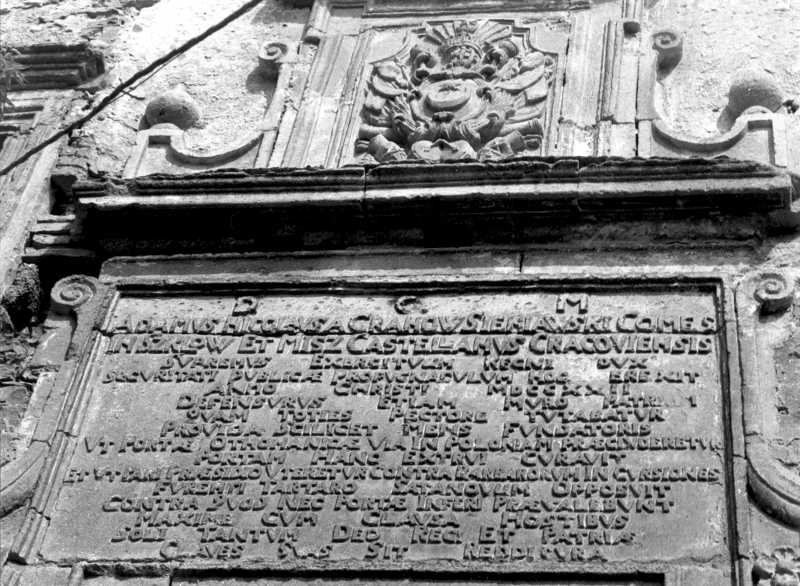 D C M
ADAMUS NICOLAUS A GRANOW SIENIAWSKI COMES
IN SZKLOW ET MISZ CASTELLANUS CRACOVIENSIS
SUPREMUS EXERCITUUM REGNI DUX
SECURITATI PUBLICÆ PROPUGNACULUM HOC EREXIT
ANNO CHRISTI MDCCXXII
DEFENSURUS ILLO MURO PATRIAM
QUAM TOTIES PECTORE
PROVIDA SCILICET MENS FUNDATORIS
UT PORTÆ OTTOMANICÆ VIAM IN POLONIAM PRÆCLUDERETUR
PORTAM HANC EXTRUI CURAVIT
ET UT PARI PRÆSIDIO UTERETUR CONTRA BARBARORUM INCURSIONES
FURENTI TARTARO OPPOSUIT
CONTRA QUOD NEC PORTÆ INFERI PRÆVALEBUNT
MAXIME CUM CLAUSA HOSTIBUS
SOLI TANTUM DEO REGI ET PATRIÆ
CLAVES SUAS SIT REDDITURA